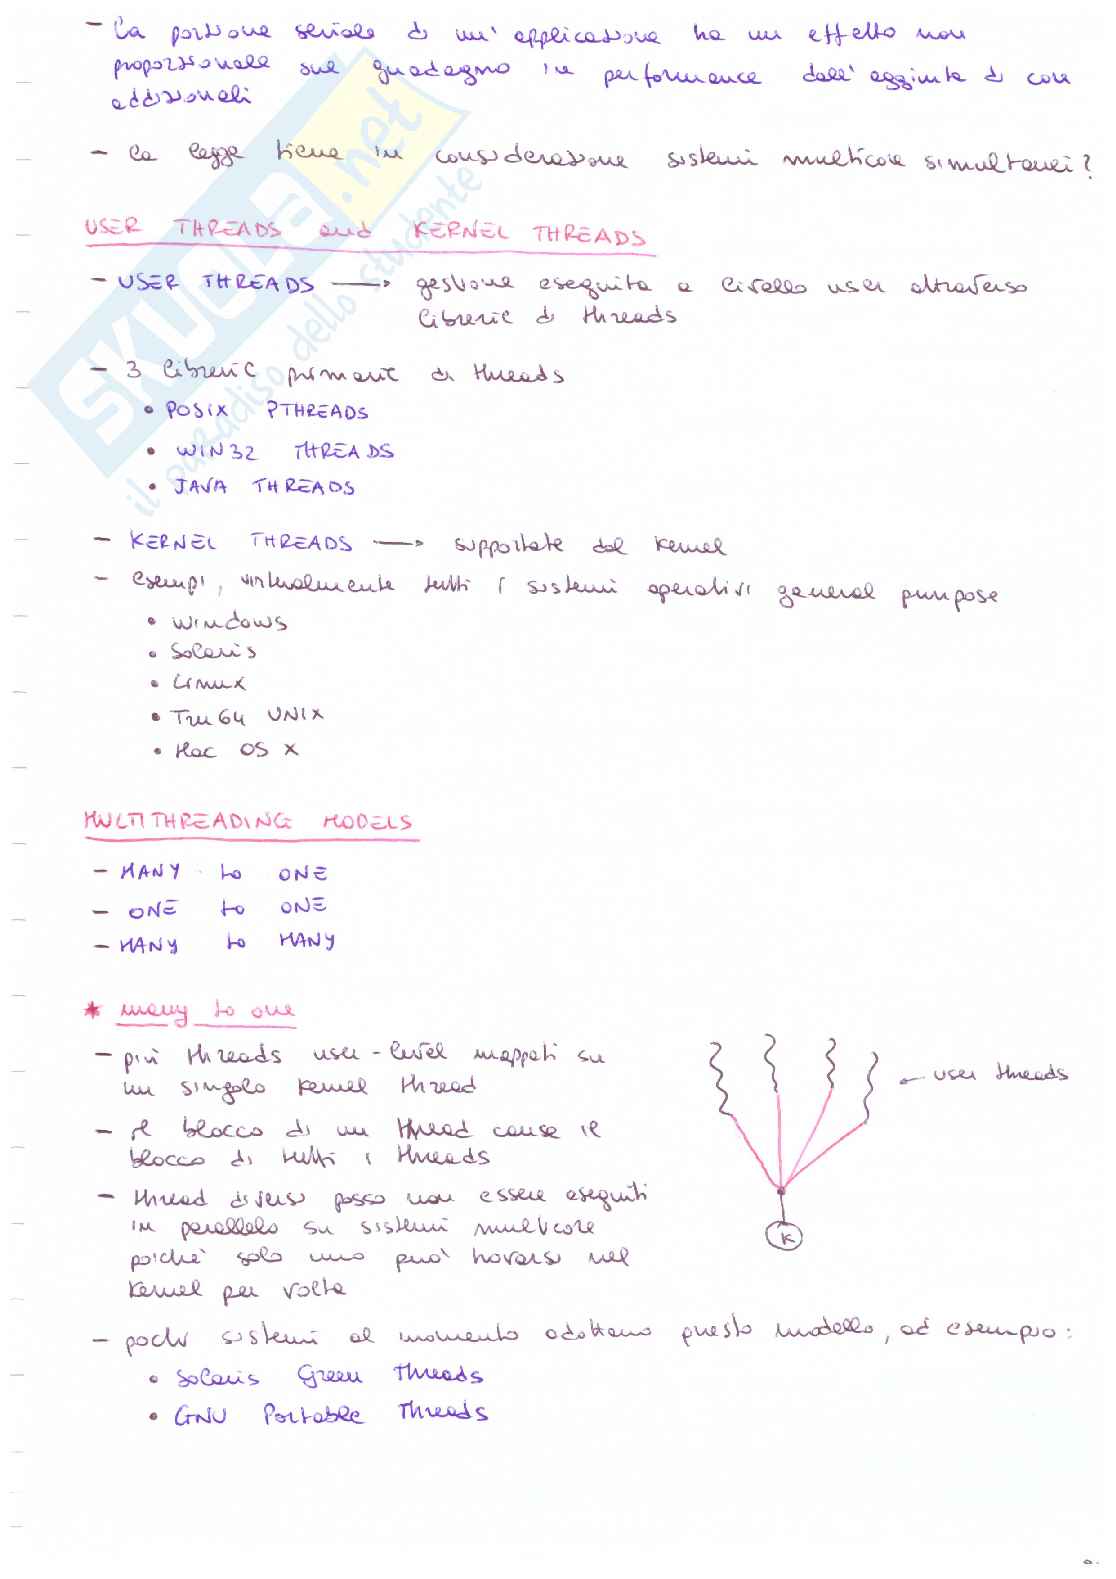 - la porzione seriale di un' applicazione ha un effetto non
proporzionale sul guadagno in performance dall' aggiunta di core
addizionali
- la legge tiene in considerazione sistemi multicore simultanei?
USER THREADS and KERNEL THREADS
- USER THREADS → gestione eseguita a livello user attraverso
librerie di threads
- 3 librerie primarie di threads
• POSIX PTHREADS
• WIN32 THREADS
• JAVA THREADS
- KERNEL THREADS → supportate dal kernel
- esempi, virtualmente tutti i sistemi operativi general purpose
• Windows
• Solaris
• Linux
• Tru64 UNIX
• Mac OS X
MULTITHREADING MODELS
- MANY to ONE
- ONE to ONE
- MANY to MANY
* many to one
- più threads user-level mappati su
un singolo kernel thread
- il blocco di un thread causa il
blocco di tutti i threads
- thread diversi posso non essere eseguiti
in parallelo su sistemi multicore
poichè solo uno può trovarsi nel
kernel per volta
← user threads
K
- pochi sistemi al momento adottano questo modello, ad esempio:
• Solaris Green Threads
• GNU Portable Threads
SKUOLA.net
il paradiso dello studente